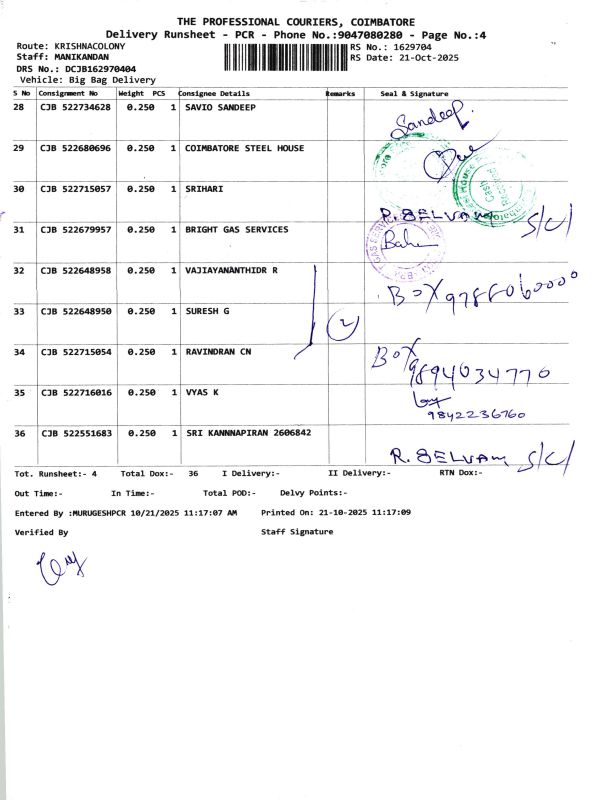 THE PROFESSIONAL COURIERS, COIMBATORE
Delivery Runsheet - PCR - Phone No.:9047080280 - Page No.:4
Route: KRISHNACOLONY
Staff: MANIKANDAN
DRS No.: DCJB162970404
Vehicle: Big Bag Delivery
RS No.: 1629704
RS Date: 21-Oct-2025
S No Consignment No Weight PCS Consignee Details Remarks Seal & Signature
28 CJB 522734628 0.250 1 SAVIO SANDEEP Sandeep
29 CJB 522680696 0.250 1 COIMBATORE STEEL HOUSE
30 CJB 522715057 0.250 1 SRIHARI R. SELVAM S/C/
31 CJB 522679957 1 BRIGHT GAS SERVICES
32 CJB 522648958 0.250 1 VAJIAYANANTHIDR R BOX
33 CJB 522648950 0.250 1 SURESH G 2
34 CJB 522715054 0.250 1 RAVINDRAN CN BOX 9894034770
35 CJB 522716016 0.250 1 VYAS K 9842236760
36 CJB 522551683 0.250 1 SRI KANNNAPIRAN 2606842 R. SELVAM S/C/
Tot. Runsheet:- 4 Total Dox:- 36 I Delivery:- II Delivery:- RTN Dox:-
Out Time:- In Time:- Total POD:- Delvy Points:-
Entered By :MURUGESHPCR 10/21/2025 11:17:07 AM Printed On: 21-10-2025 11:17:09
Verified By Staff Signature